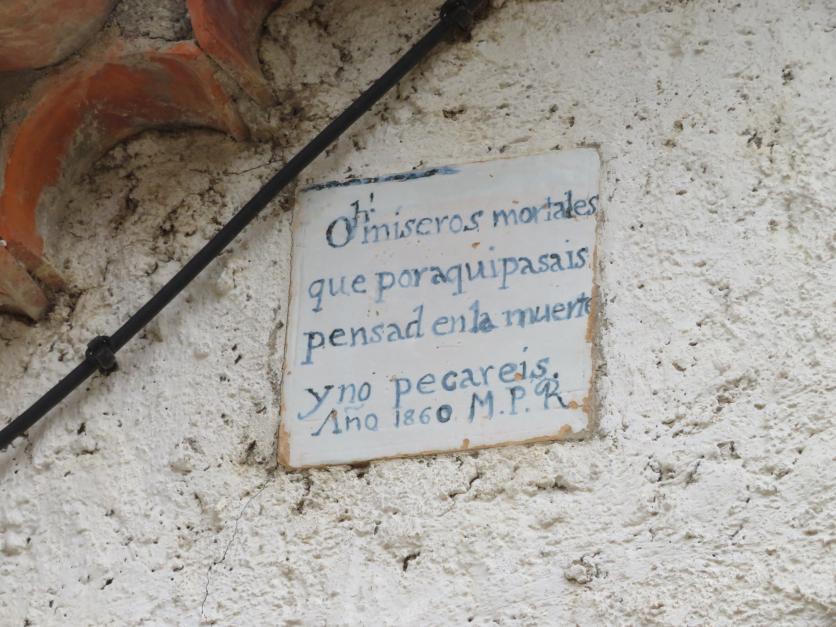 Oh! miseros mortales
que poraquipasais
pensad enla muerte
yno pecareis.
Año 1860 M.P.R.